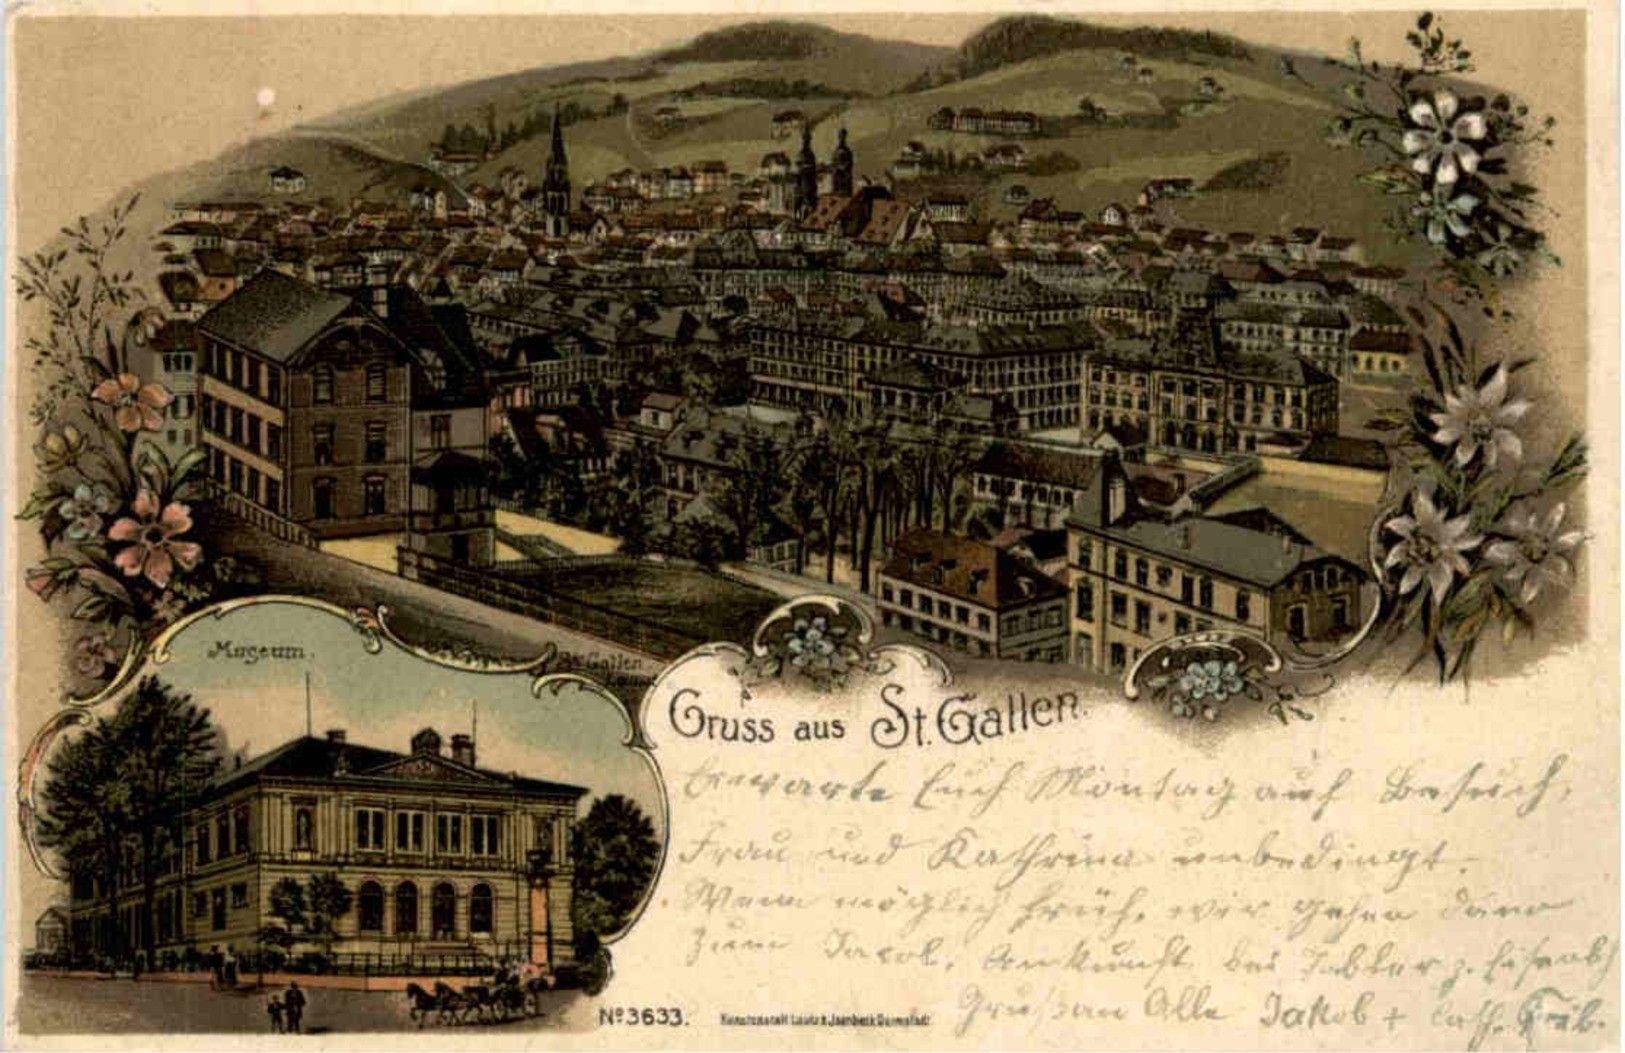 Museum.
St. Gallen
Gruss aus St. Gallen.
Erwarte Euch Montag auf Besuch,
Frau und Kathrina unbedingt.
Wenn möglich früh, wir gehen dann
zum Jacob. Ankunft bei Tobler z.
Gruß an Alle Jakob +
No 3633.
Kunstanstalt Lautz & Isenbeck Darmstadt